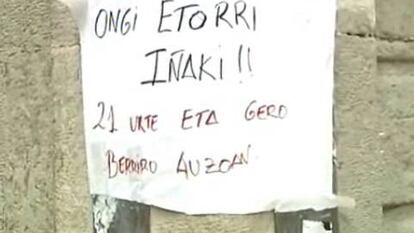 ONGI ETORRI
IÑAKI !!
21 URTE ETA GERO
BERRIRO AUZOAN